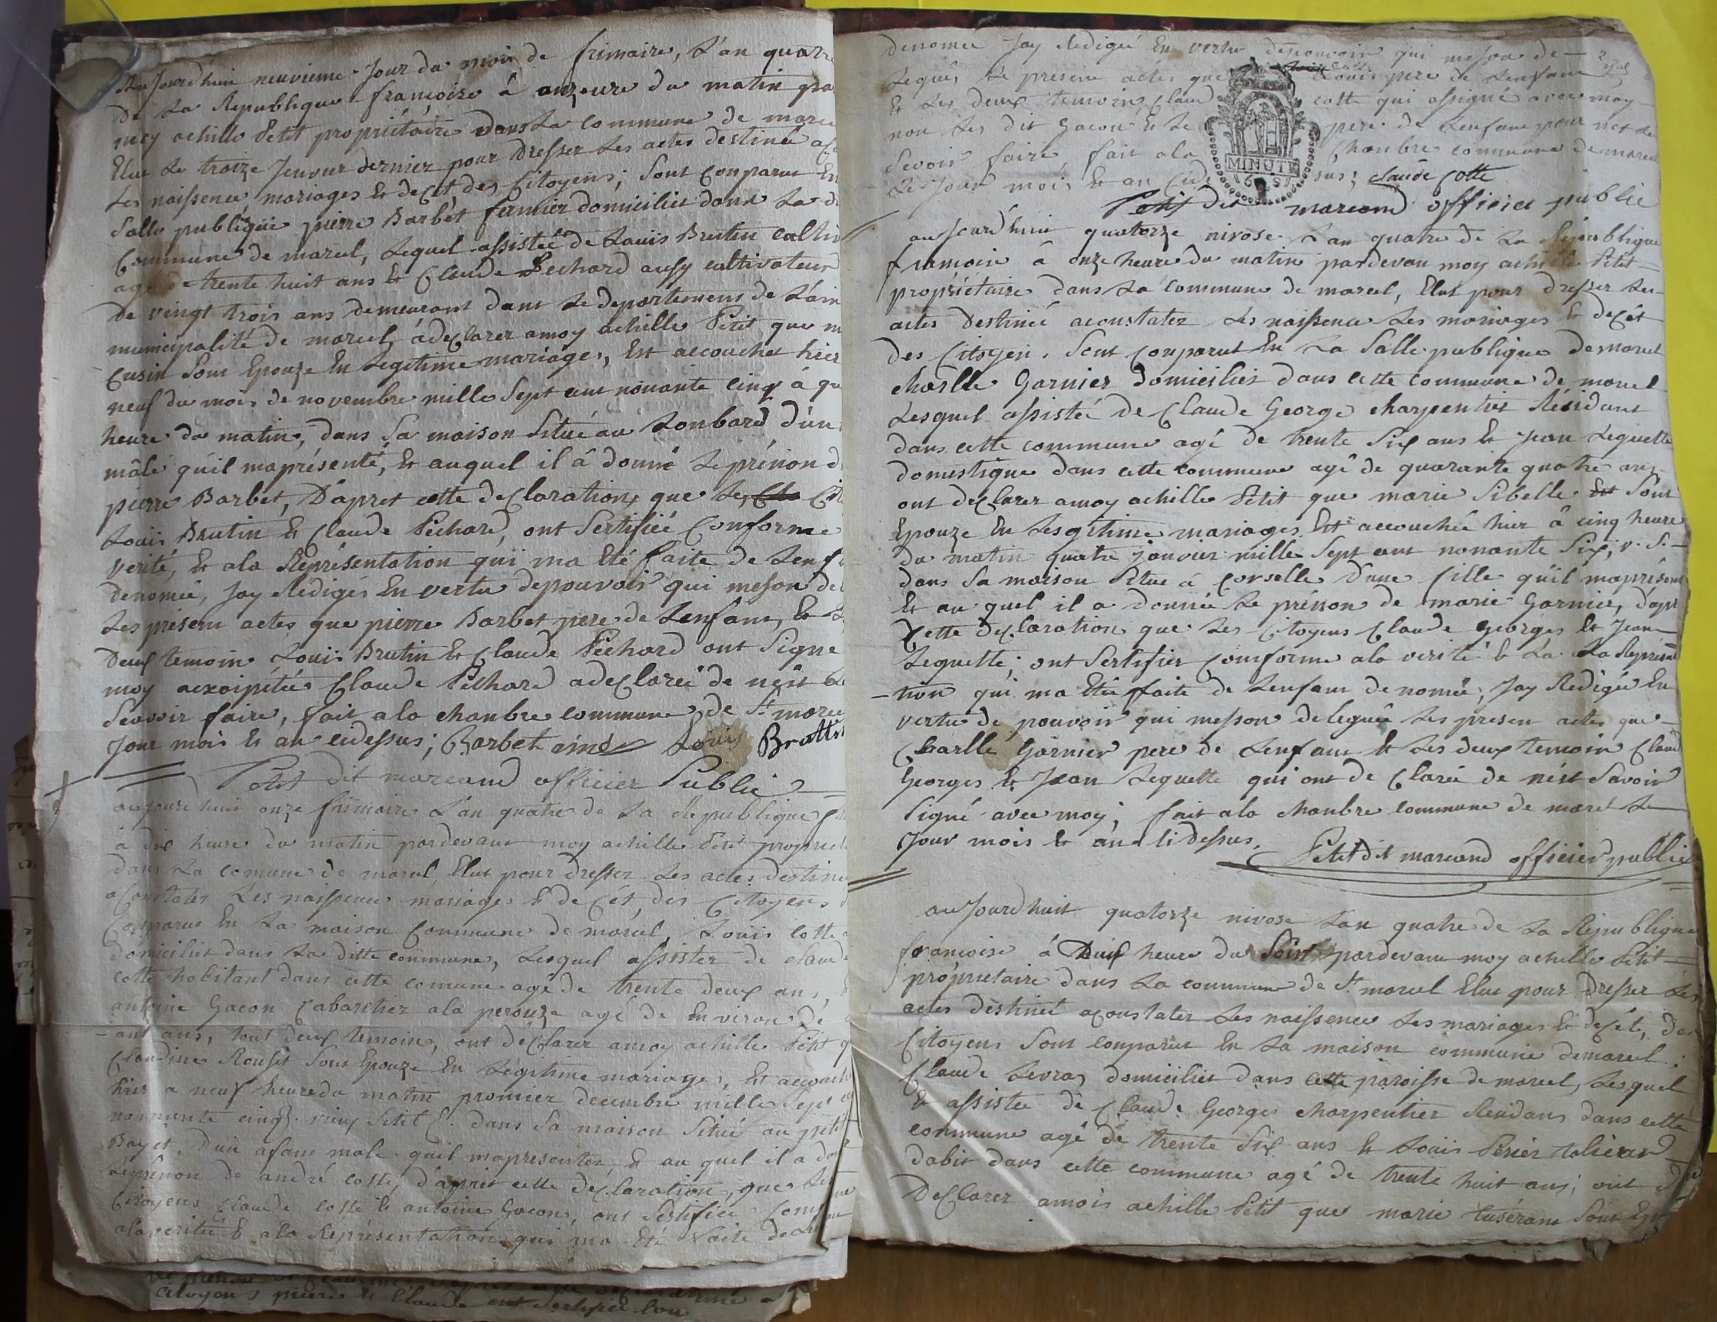 Aujourd'huie neuvieme Jour du mois de frimaire, L'an quatre
De La Republique françoise â onzeure du matin par
moy achille Petit propriétaire dans La Commune de marce
Elue Le treize Jenvier dernier pour Dresser Les actes destiné a
Les naissence mariages Et deCêt des Citoyens; Sont Conparut En
Salle publique pierre Barbet fermier domicilié dans La di
Commune de marcel, Lequel assistée de Louis Brutin Cultiv
agé de trente huit ans Et Claude Péchard ausy cultivateur
De vingt trois ans demeurant dans Le departement de L'ain
municipalité de marcel, âdeClarer amoy achille Petit que m
Cusin Sont Epouze En Legitime mariages, Est accouchet hier
neuf du mois de novembre mille Sept cent nonante cinq à qu
heure du matin, dans Sa maison Situé au Lonbard d'un
mâle qûil maprésenté, Et auquel il â donné Le prénon d
pierre Barbet, D'apret cette deClaration, que Les Cit
Louis Brutin Et Claude Péchard, ont Sertifiée Conforme
verité, Et ala Représentation quï ma Eté faite de Lenf
Denomée, Jay Rediges En vertu depouvoir qui meson de
Les présent actes que pierre Barbet pere de Lenfant, Et L
Deux temoin Louis Brutin Et Claude Péchard ont Signe
moy Claude Péchard adeClareé de nêst
Savoir faire, fait ala chanbre commune de St marce
Jour mois Et an cidessus; Barbet ainé Louis Brutti
Petit dit marcand officier Public
aujourd'huis onze frimaire L'an quatre de La Republique f
â dix heure du matin pardevant moy achille Petit propriet
dans La comune de marcel Elut pour dresser Les actes destine
aConstater Les naissence mariages Et deCêt, des Citoyens
Conparue En La maison Commune de marcel, Louis Coste
domicilié dans La ditte commune, Lesquel assister de Claude
Cotte habitant dans cette comune agé de trente deux ans,
antoine Gacon Cabaretier ala perouze agé de Environ de
ans, tout deux temoin, ont déClarer amoy achille Petit q
Claudine Rouset Sont Epouze En Legitime mariage, Et accouch
hier a neuf heure du matin premier decembre mille Sept
nonnante cinq, dans Sa maison Situé au petit
Bayet D'un afans male quil mapresenter, Et au quel il a do
Leprénon de andré cotte, d'aprés cette deClaration, que Les
Citoyens Claude Cotte Et antoine Gacon, ont Sertifiée Conforme
alaverité Et ala Réprésentation qui ma Eté faite de L
Denomée Jay Redigée En vertu depouvoir qui meson de
Legués Le présent actes que Louis pere de Lenfant
Et Les deux temoins Claud cotte qui assigné avec moy
non Les dit Gacon Et Le pere de Lenfant pour nét de
Savoir faire, fait ala Chanbre commune demarcel
Le Jour mois Et an Cid sus; Claude Cotte
Petit dit marcand officier public
MINUTE
aujourd'huie quatorze nivose L'an quatre de La République
francoise â onze heure du matin pardevant moy achille Petit
propriétaire dans La commune de marcel, Elut pour dresser Les
actes Destinéé aconstater Les naissence Les mariages Et deCêt
Des Citoyens, Sont Conparut En La Salle publique demarcel
charlle Garnier domicilier dans cette commune de marcel
Lesquel assistéé de Claude George charpentier Résidant
dans cette commune agé de trente Six ans Et Jean Lequette
Domestique dans cette commune agê de quarante quatre ans
ont déClarer amoy achille Petit que marie Sibelle Est Sont
Epouze En Lesgitime mariages Est accouchée hier â cinq heure
Du matin quatre Janvier mille Sept cent nonante Six; v. S.
dans Sa maison Situé â Corselle D'une fille quïl maprésent
Et au quel il a donnée Le prénon de marie Garnier, d'aprè
Cette déClaration que Les Citoyens Claude Georges Et Jean
Lequette, ont Sertifier Comforme ala verité Et La La Représent
tion qui ma Etée faite de Lenfant denomée, Jay Redigée En
vertu de pouvoir qui messon deleguée Les present actes que
Charlle Garnier pere de Lenfant Et Les deux temoin Claud
Georges Et Jean Lequette qui ont de Clarée de nêst Savoir
Signé avec moy; fait ala chanbre commune de marcel Le
Jour mois Et an Cidessus.
Petit dit marcand officier public
auJourd'huit quatorze nivose L'an quatre de La République
françoise â Deux heure du Soire pardevant moy achille Petit
propriétaire dans La commune de St marcel Elut pour dresser Les
actes destinét aconstater Les naissence Les mariages Et deCêt, des
Citoyens Sont conparue En La maison commune demarcel
Claude Levras domicilier dans cette paroisse de marcel, Lesquel
Et assistée de Claude George charpentier Résidant dans cette
commune agé de trente Six ans Et Louis Perier talieur
dabit dans cette commune agé de trente huit ans; ont d
DeClarer amois achille Petit que marie Sont Ep
Citoyens pierre Et Claude ont Sertifiée Con